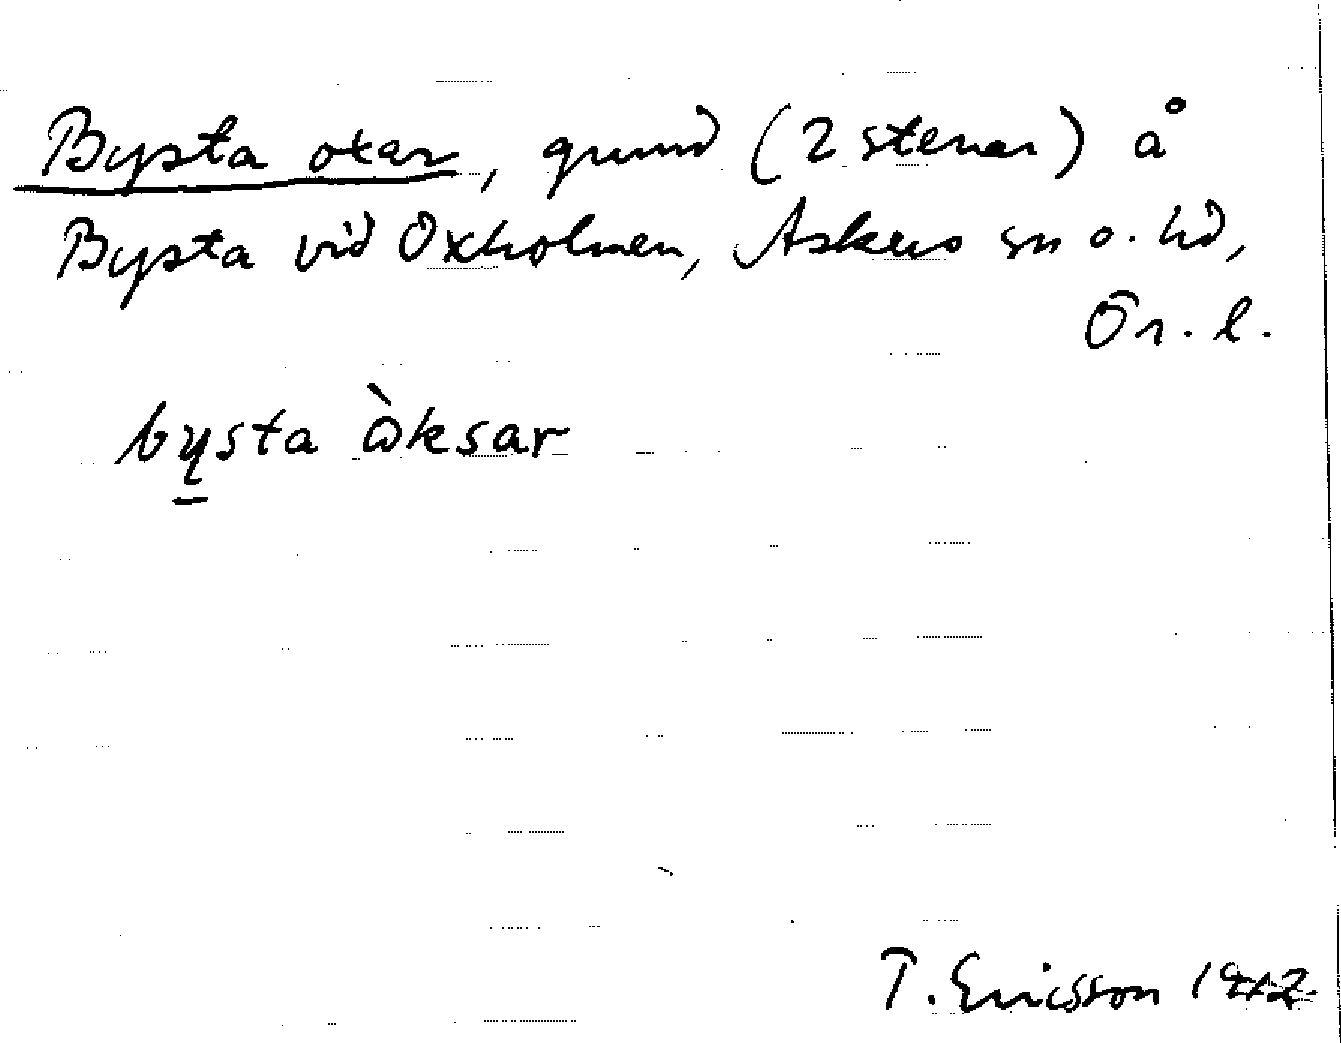 Bysta oxar, grund (2 stenar) å
Bysta vid Oxholmen, Askers sn o. hd,
Ör. l.
bysta òksar
T. Ericsson